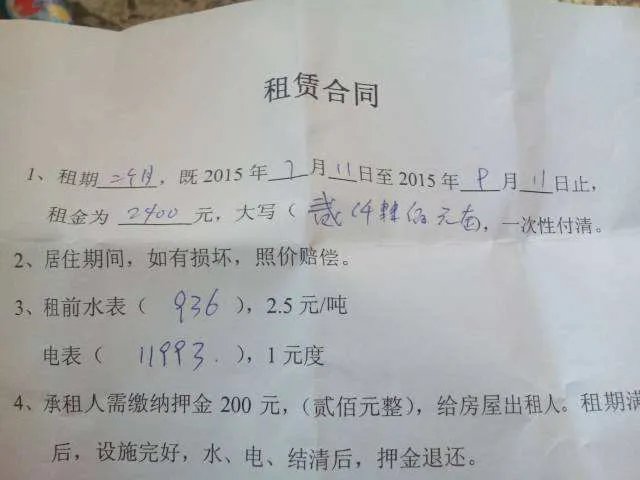 租赁合同
1、租期二个月，既2015年7月11日至2015年9月11日止，
租金为2400元，大写（贰仟肆佰元整），一次性付清。
2、居住期间，如有损坏，照价赔偿。
3、租前水表（936），2.5元/吨
电表（11993.），1元度
4、承租人需缴纳押金200元，（贰佰元整），给房屋出租人。租期满
后，设施完好，水、电、结清后，押金退还。